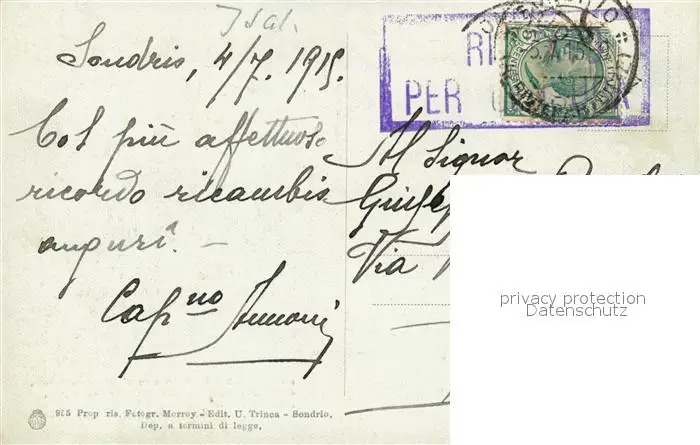 Ital.
Sondrio, 4/7. 1915.
Col più affettuoso
ricordo ricambio
auguri. —
Cap.no
Al Signor
Via
PER
privacy protection
Datenschutz
915 Prop ris. Fotogr. Merroy - Edit. U. Trinca - Sondrio.
Dep. a termini di legge.